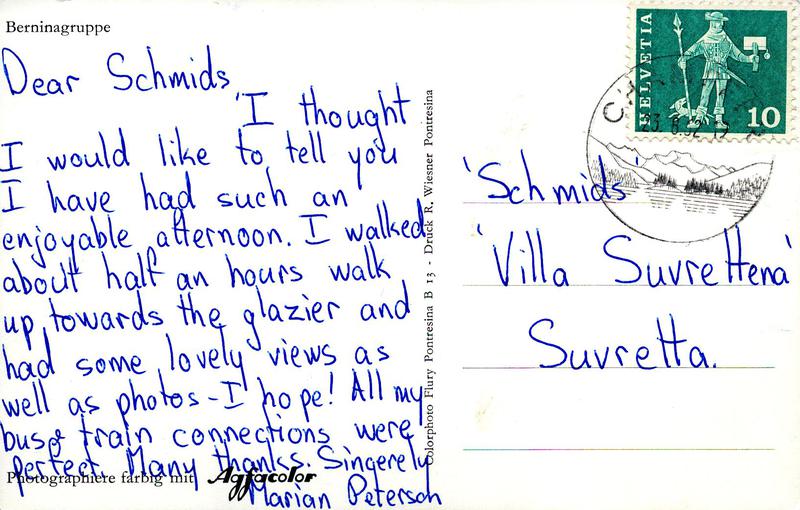 Berninagruppe
Dear Schmids,
'I thought
I would like to tell you
I have had such an
enjoyable afternoon. I walked
about half an hours walk
up towards the glazier and
had some lovely views as
well as photos - I hope! All my
bus & train connections were
perfect. Many thanks. Singerely
Marian Peterson
Photographiere farbig mit Agfacolor
Colorphoto Flury Pontresina B 13 - Druck R. Wiesner Pontresina
HELVETIA
10
'Schmids'
'Villa Suvrettena'
Suvretta.